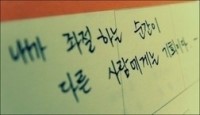 내가 좌절 하는 순간이
다른 사람에게는 기회이다